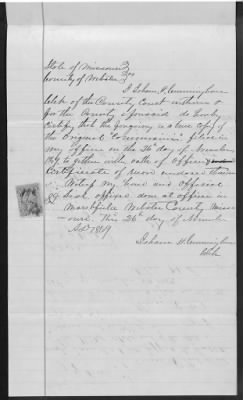 State of Missouri } ss
County of Webster
I Isham H. Cunningham
Clerk of the County Court within &
for the County aforesaid do hereby
certify that the foregoing is a true copy of
the original Commission filed in
my office on the 26 day of November
1869 together with oath of office
Certificate of
Witness my hand and official
Seal office done at office in
Marshfield Webster County Miss
ouri. This 26 day of November
AD 1869
Isham H. Cunningham
Clk